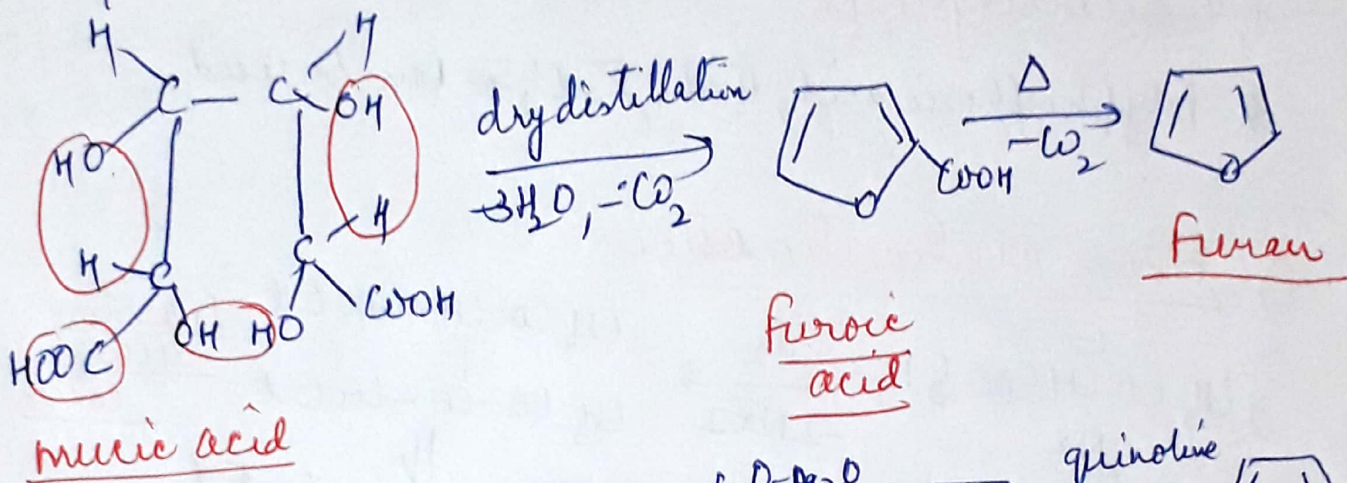 H H
C — C OH
HO
H C C H
HOOC OH HO COOH
mucic acid
dry distillation
-3H2O, -CO2
O COOH
furoic
acid
Δ
-CO2
O
Furan
quinoline